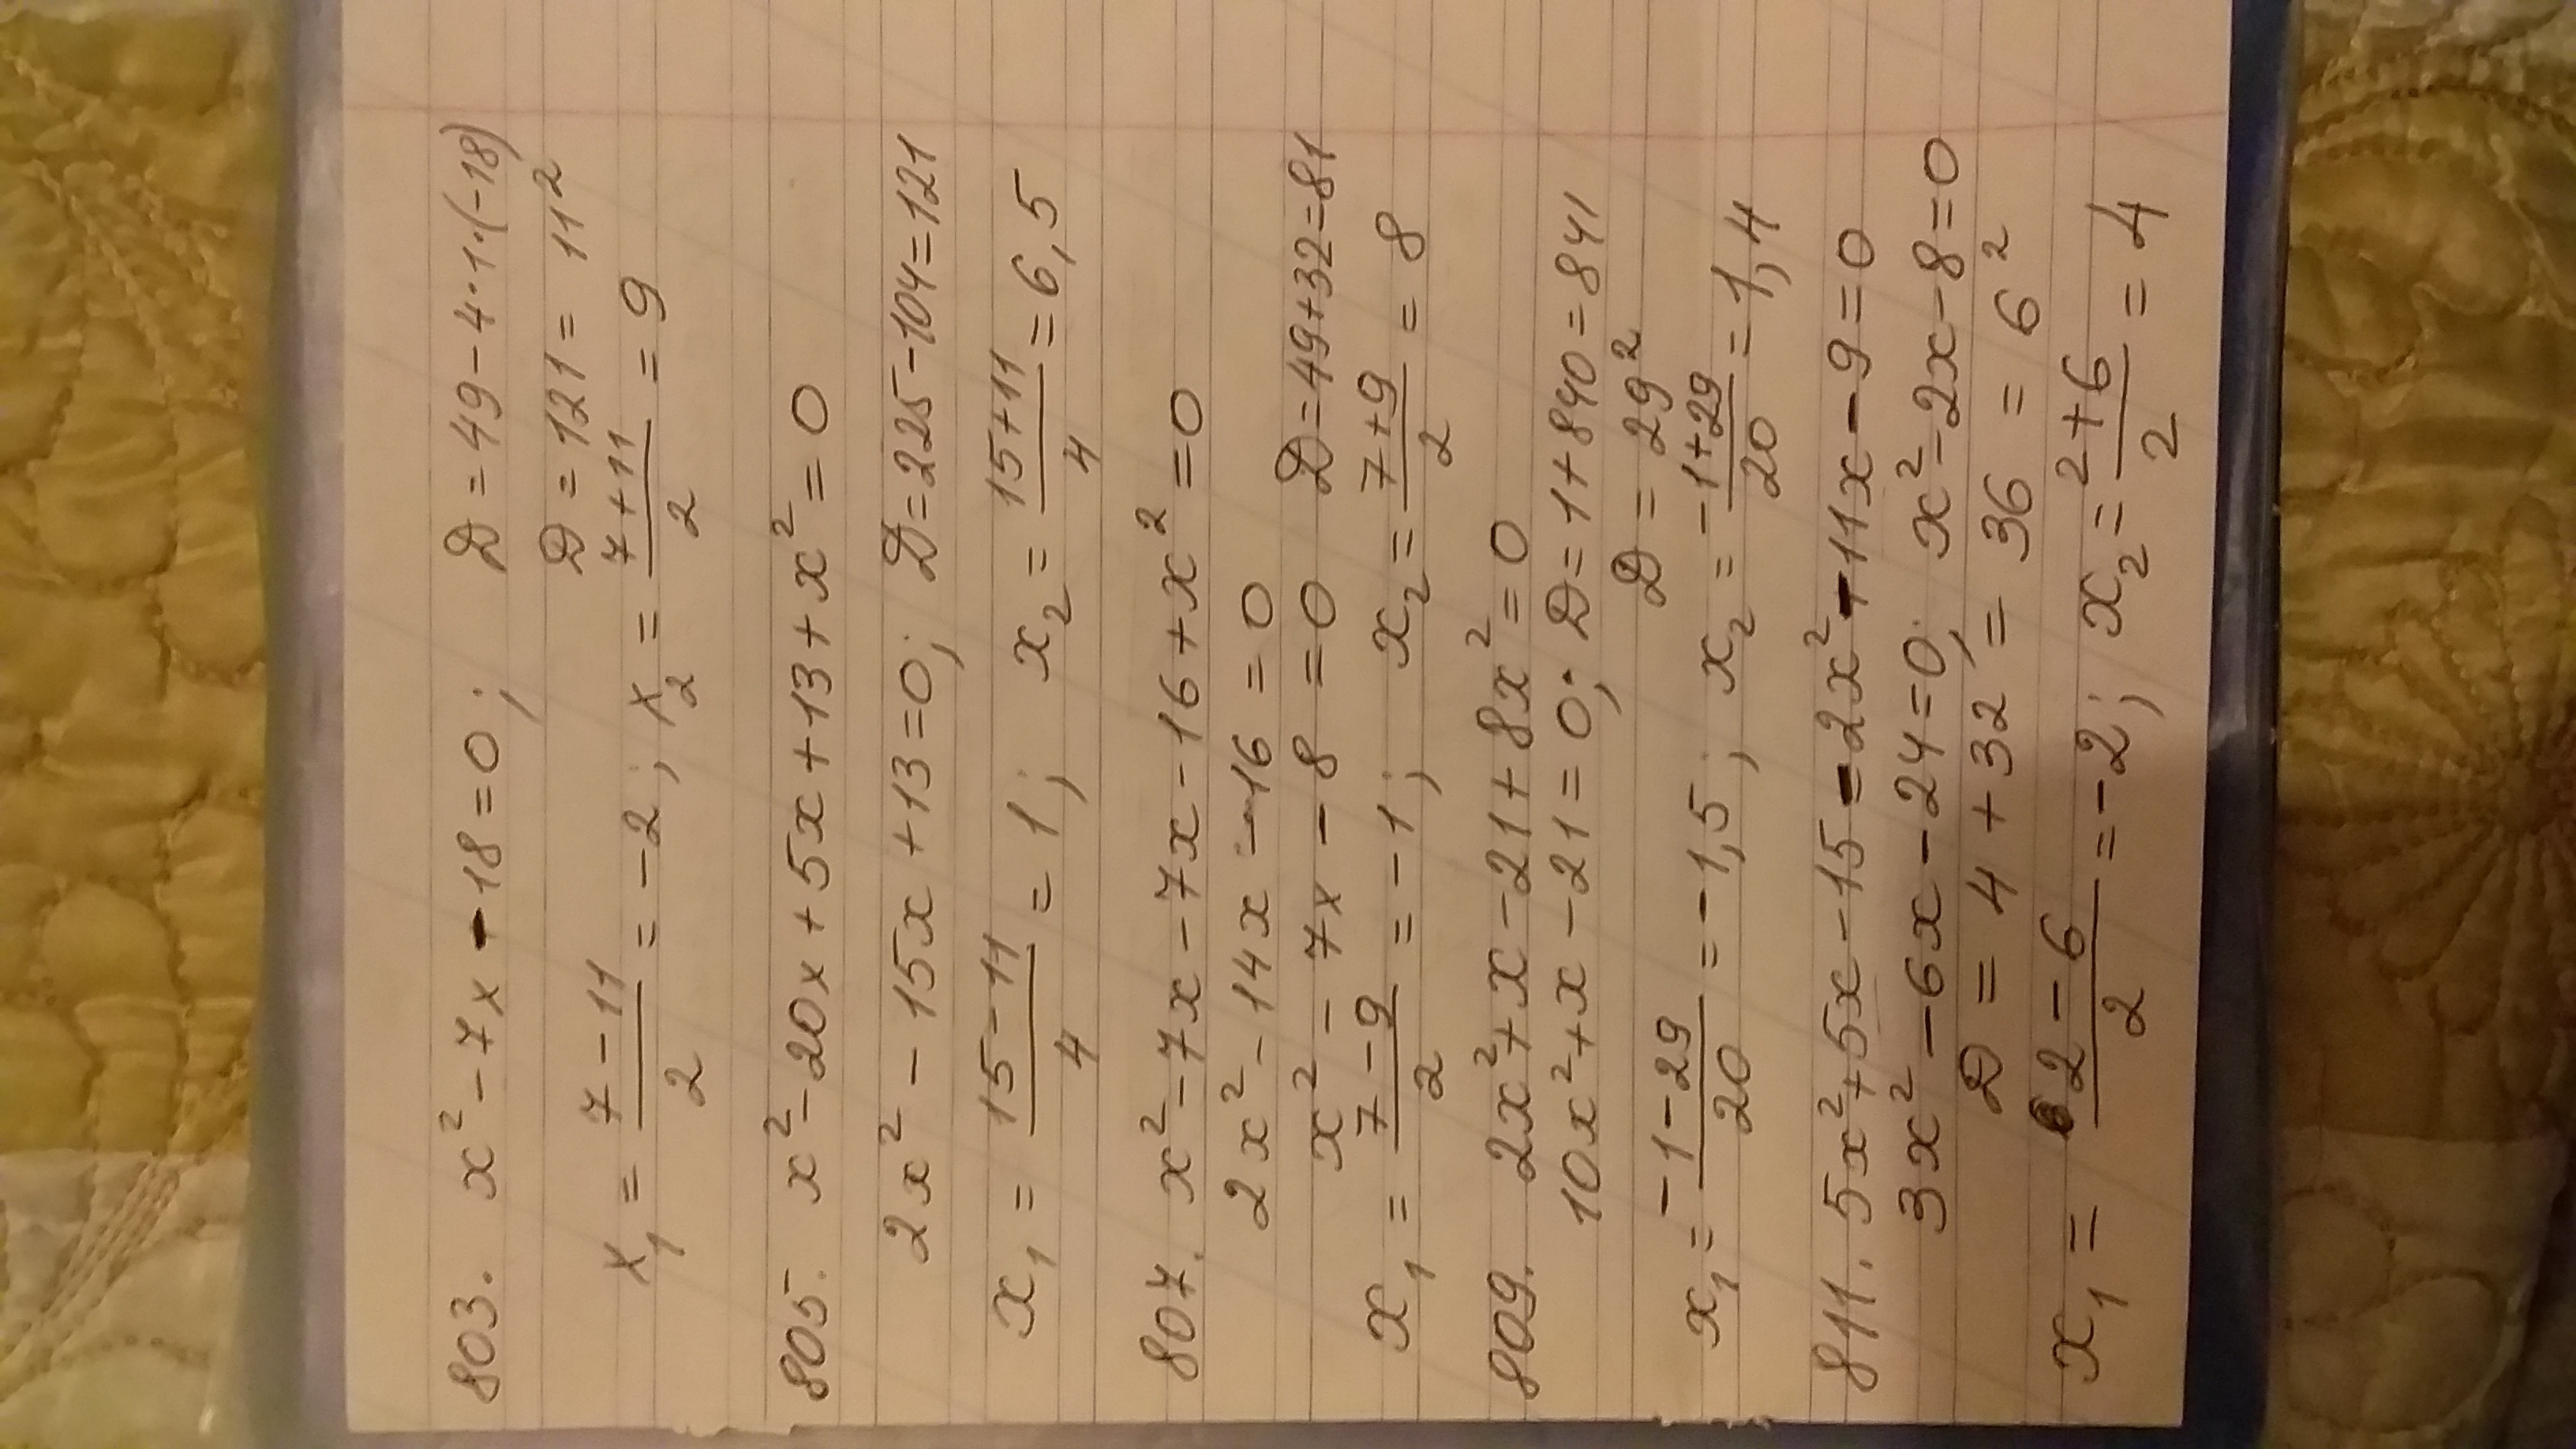 803. x² - 7x - 18 = 0; D = 49 - 4·1·(-18)
D = 121 = 11²
x₁ = (7 - 11)/2 = -2; x₂ = (7 + 11)/2 = 9
805. x² - 20x + 5x + 13 + x² = 0
2x² - 15x + 13 = 0; D = 225 - 104 = 121
x₁ = (15 - 11)/4 = 1; x₂ = (15 + 11)/4 = 6,5
807. x² - 7x - 7x - 16 + x² = 0
2x² - 14x - 16 = 0
x² - 7x - 8 = 0 D = 49 + 32 = 81
x₁ = (7 - 9)/2 = -1; x₂ = (7 + 9)/2 = 8
809. 2x² + x - 21 + 8x² = 0
10x² + x - 21 = 0; D = 1 + 840 = 841
D = 29²
x₁ = (-1 - 29)/20 = -1,5; x₂ = (-1 + 29)/20 = 1,4
811. 5x² + 5x - 15 - 2x² - 11x - 9 = 0
3x² - 6x - 24 = 0; x² - 2x - 8 = 0
D = 4 + 32 = 36 = 6²
x₁ = (2 - 6)/2 = -2; x₂ = (2 + 6)/2 = 4